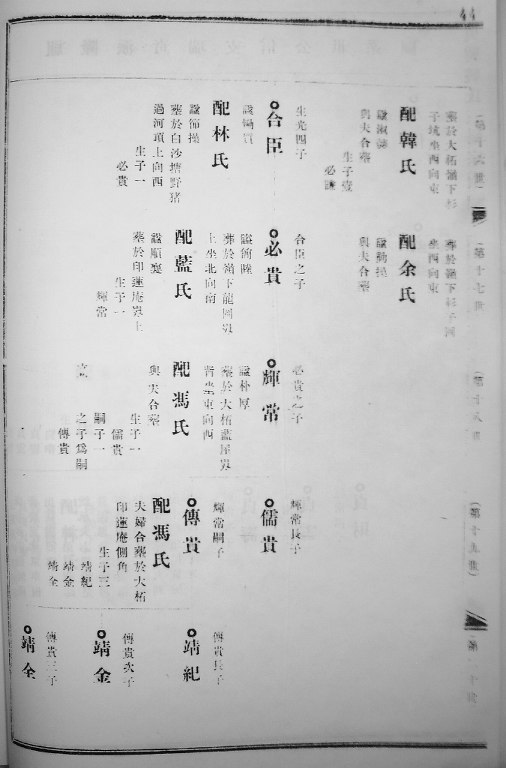 第十六世
第十七世
第十八世
第十九世
第二十世
葬於大柘嶺下杉
子坑坐西向東
配韓氏
諡淑
與夫合葬
生子壹
必
生光四子
合臣
配林氏
諡節操
葬於白沙塘野猪
過河項上向西
生子一
必貴
葬於嶺下杉子
坐西向東
配余氏
諡勤操
與夫合葬
合臣之子
必貴
葬於嶺下龍岡
上坐北向南
配藍氏
諡順
葬於印蓮庵
上
生子一
輝常
必貴之子
輝常
諡朴厚
葬於大柘藍屋
背坐東向西
配馮氏
與夫合葬
生子一
儒貴
嗣子一
之子為嗣
傳貴
輝常長子
儒貴
輝常嗣子
傳貴
配馮氏
夫婦合葬於大柘
印蓮庵側角
生子三
靖紀
靖金
靖全
傳貴長子
靖紀
傳貴次子
靖金
傳貴三子
靖全